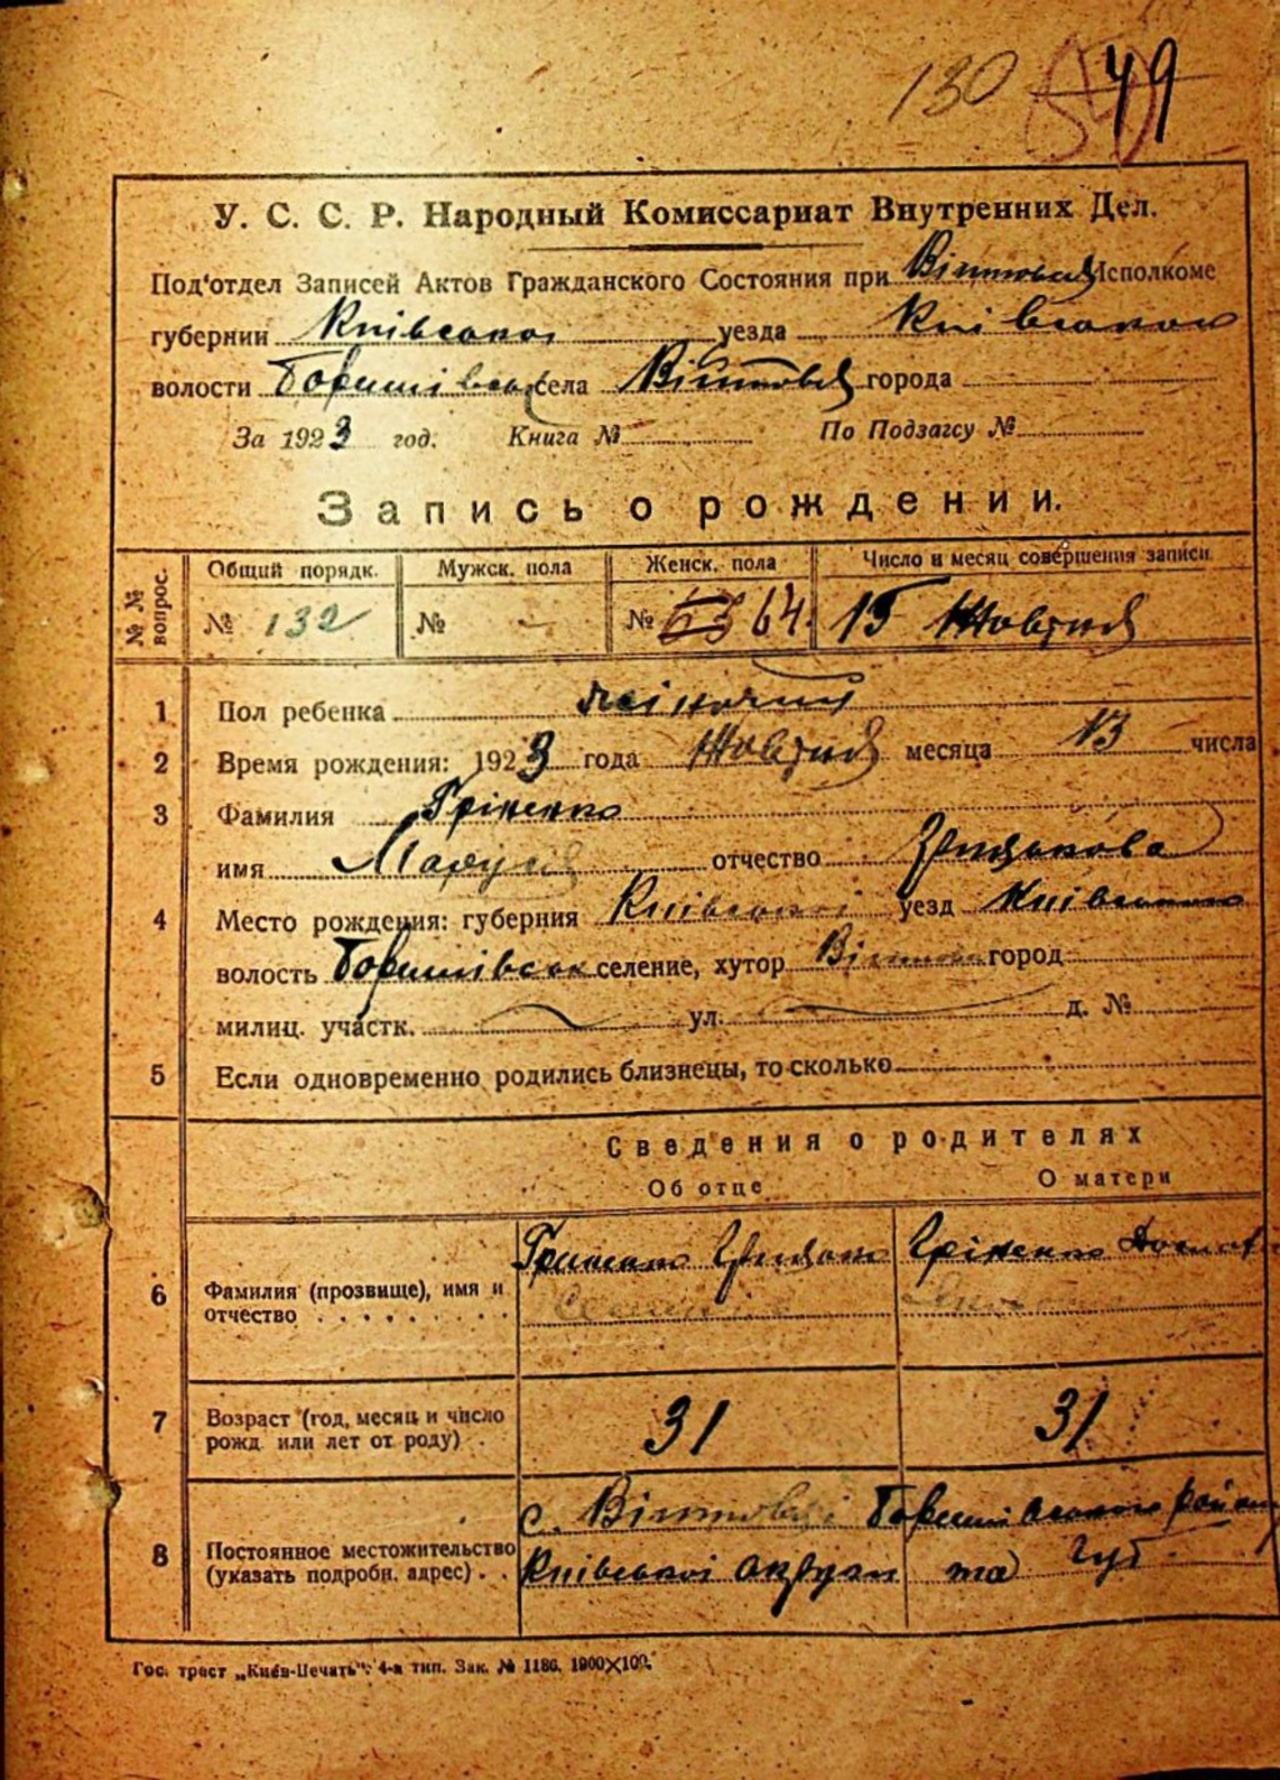 130 49
У. С. С. Р. Народный Комиссариат Внутренних Дел.
Под'отдел Записей Актов Гражданского Состояния при Исполкоме
губернии Київської уезда Київського
волости Баришівськ села Війтовці города
За 1923 год. Книга № По Подзагсу №
Запись о рождении.
№ № вопрос.
Общий порядк. Мужск. пола Женск. пола Число и месяц совершения записи
№ 132 № - № 64. 15 Жовтня
1 Пол ребенка жіночий
2 Время рождения: 1923 года Жовтня месяца 13 числа
3 Фамилия Гріненко
имя Маруся отчество Грицькова
4 Место рождения: губерния Київської уезд Київського
волость Баришівськ селение, хутор город
милиц. участк. ул. д. №
5 Если одновременно родились близнецы, то сколько
Сведения о родителях
Об отце О матери
6 Фамилия (прозвище), имя и отчество
Гриненко Грицько Гріненко
7 Возраст (год, месяц и число рожд. или лет от роду)
31 31
с. Війтовці Баришівського району
8 Постоянное местожительство (указать подробн. адрес)
Київської округи та губ.
Гос. трест „Киев-Печать": 4-я тип. Зак. № 1186. 1000×100.